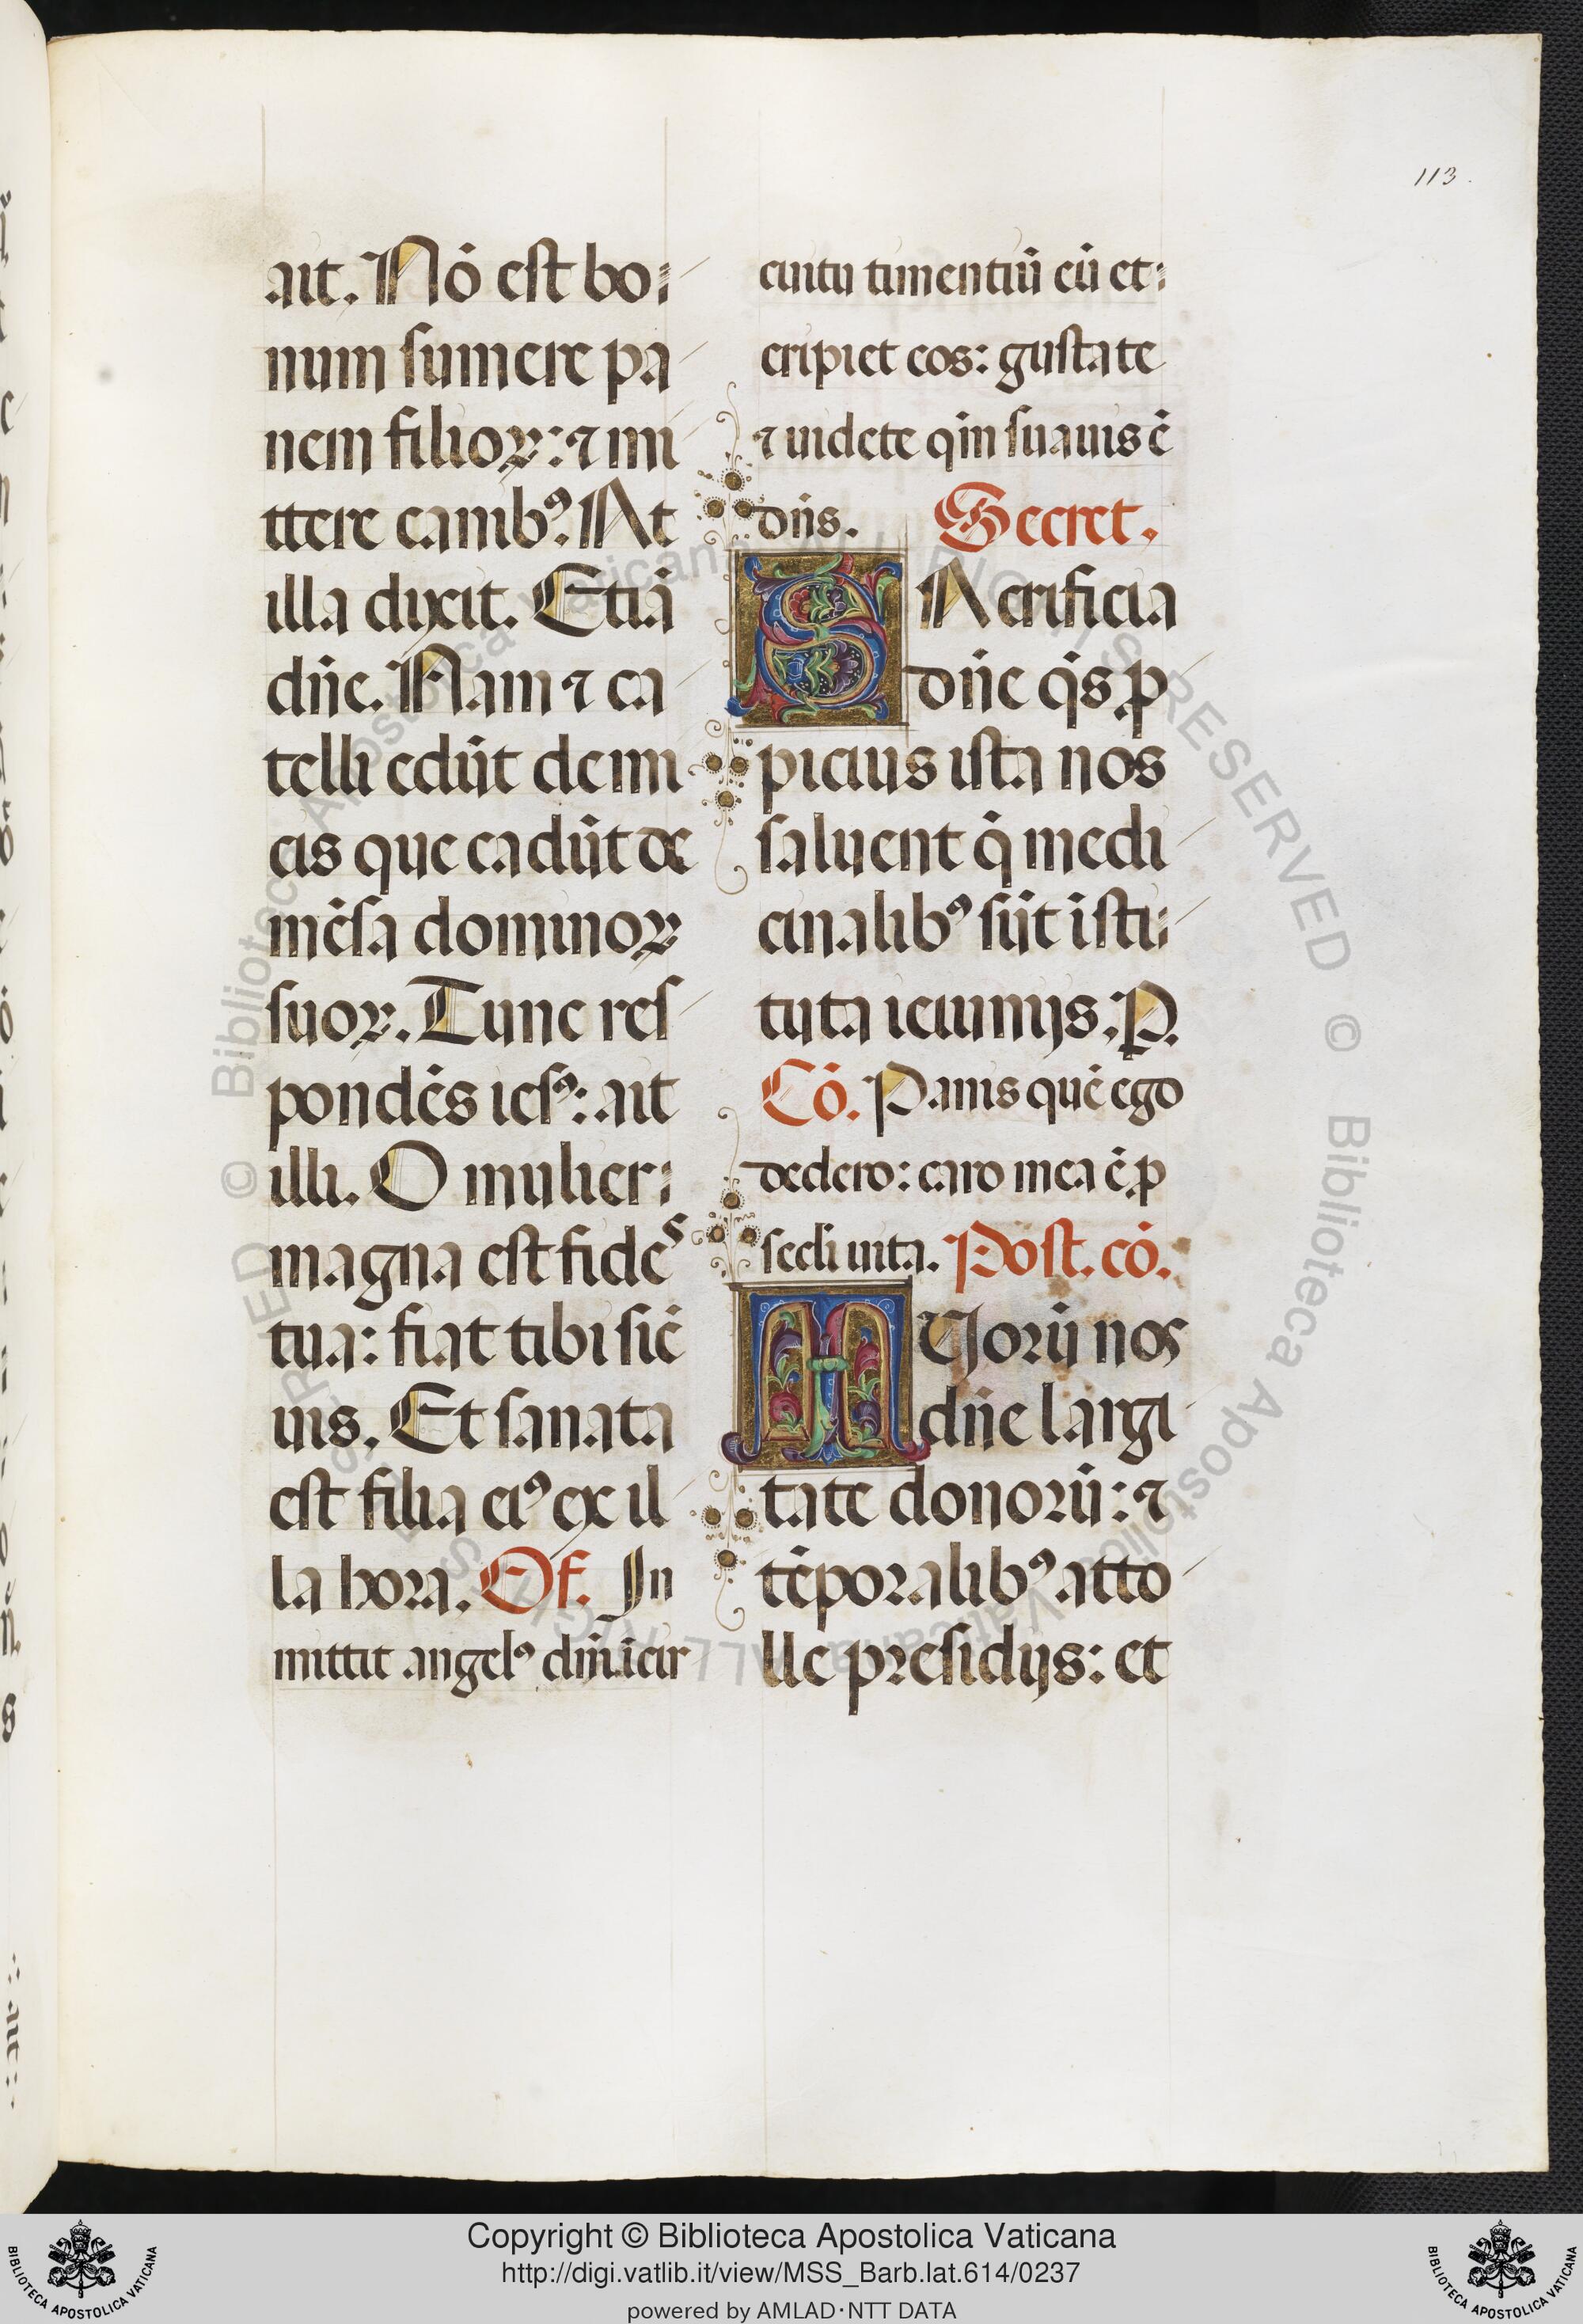 113.
ait. Nō est bo⸗
num sumere pa
nem filioꝝ: ⁊ mi
ttere canibꝰ. At
illa dixit. Etiā
dn̄e. Nam ⁊ ca
telli edūt de mi
cis que cadūt de
mēsa dominoꝝ
suoꝝ. Tunc res
pondēs iesꝰ: ait
illi. O mulier⸗
magna est fides
tua: fiat tibi sic̄
uis. Et sanata
est filia eiꝰ ex il
la hora. Of. In
mittit angelꝰ dn̄i ī cir
cuitu timentiū eū et⸗
eripiet eos: gustate
⁊ uidete qm̄ suauis ē
dn̄s. Secret.
SAcrificia
dn̄e q̄s ꝓ
picius ista nos
saluent q̄ medi
cinalibꝰ sūt īsti⸗
tuta ieiunijs. P.
Cō. Panis quē ego
dedero: caro mea ē ꝓ
secli uita. Post. cō.
TUorū nos
dn̄e largi
tate donorū: ⁊
tēporalibꝰ atto
lle presidijs: et
© Biblioteca Apostolica Vaticana ALL RIGHTS RESERVED
Copyright © Biblioteca Apostolica Vaticana
http://digi.vatlib.it/view/MSS_Barb.lat.614/0237
powered by AMLAD·NTT DATA
BIBLIOTECA APOSTOLICA VATICANA
BIBLIOTECA APOSTOLICA VATICANA